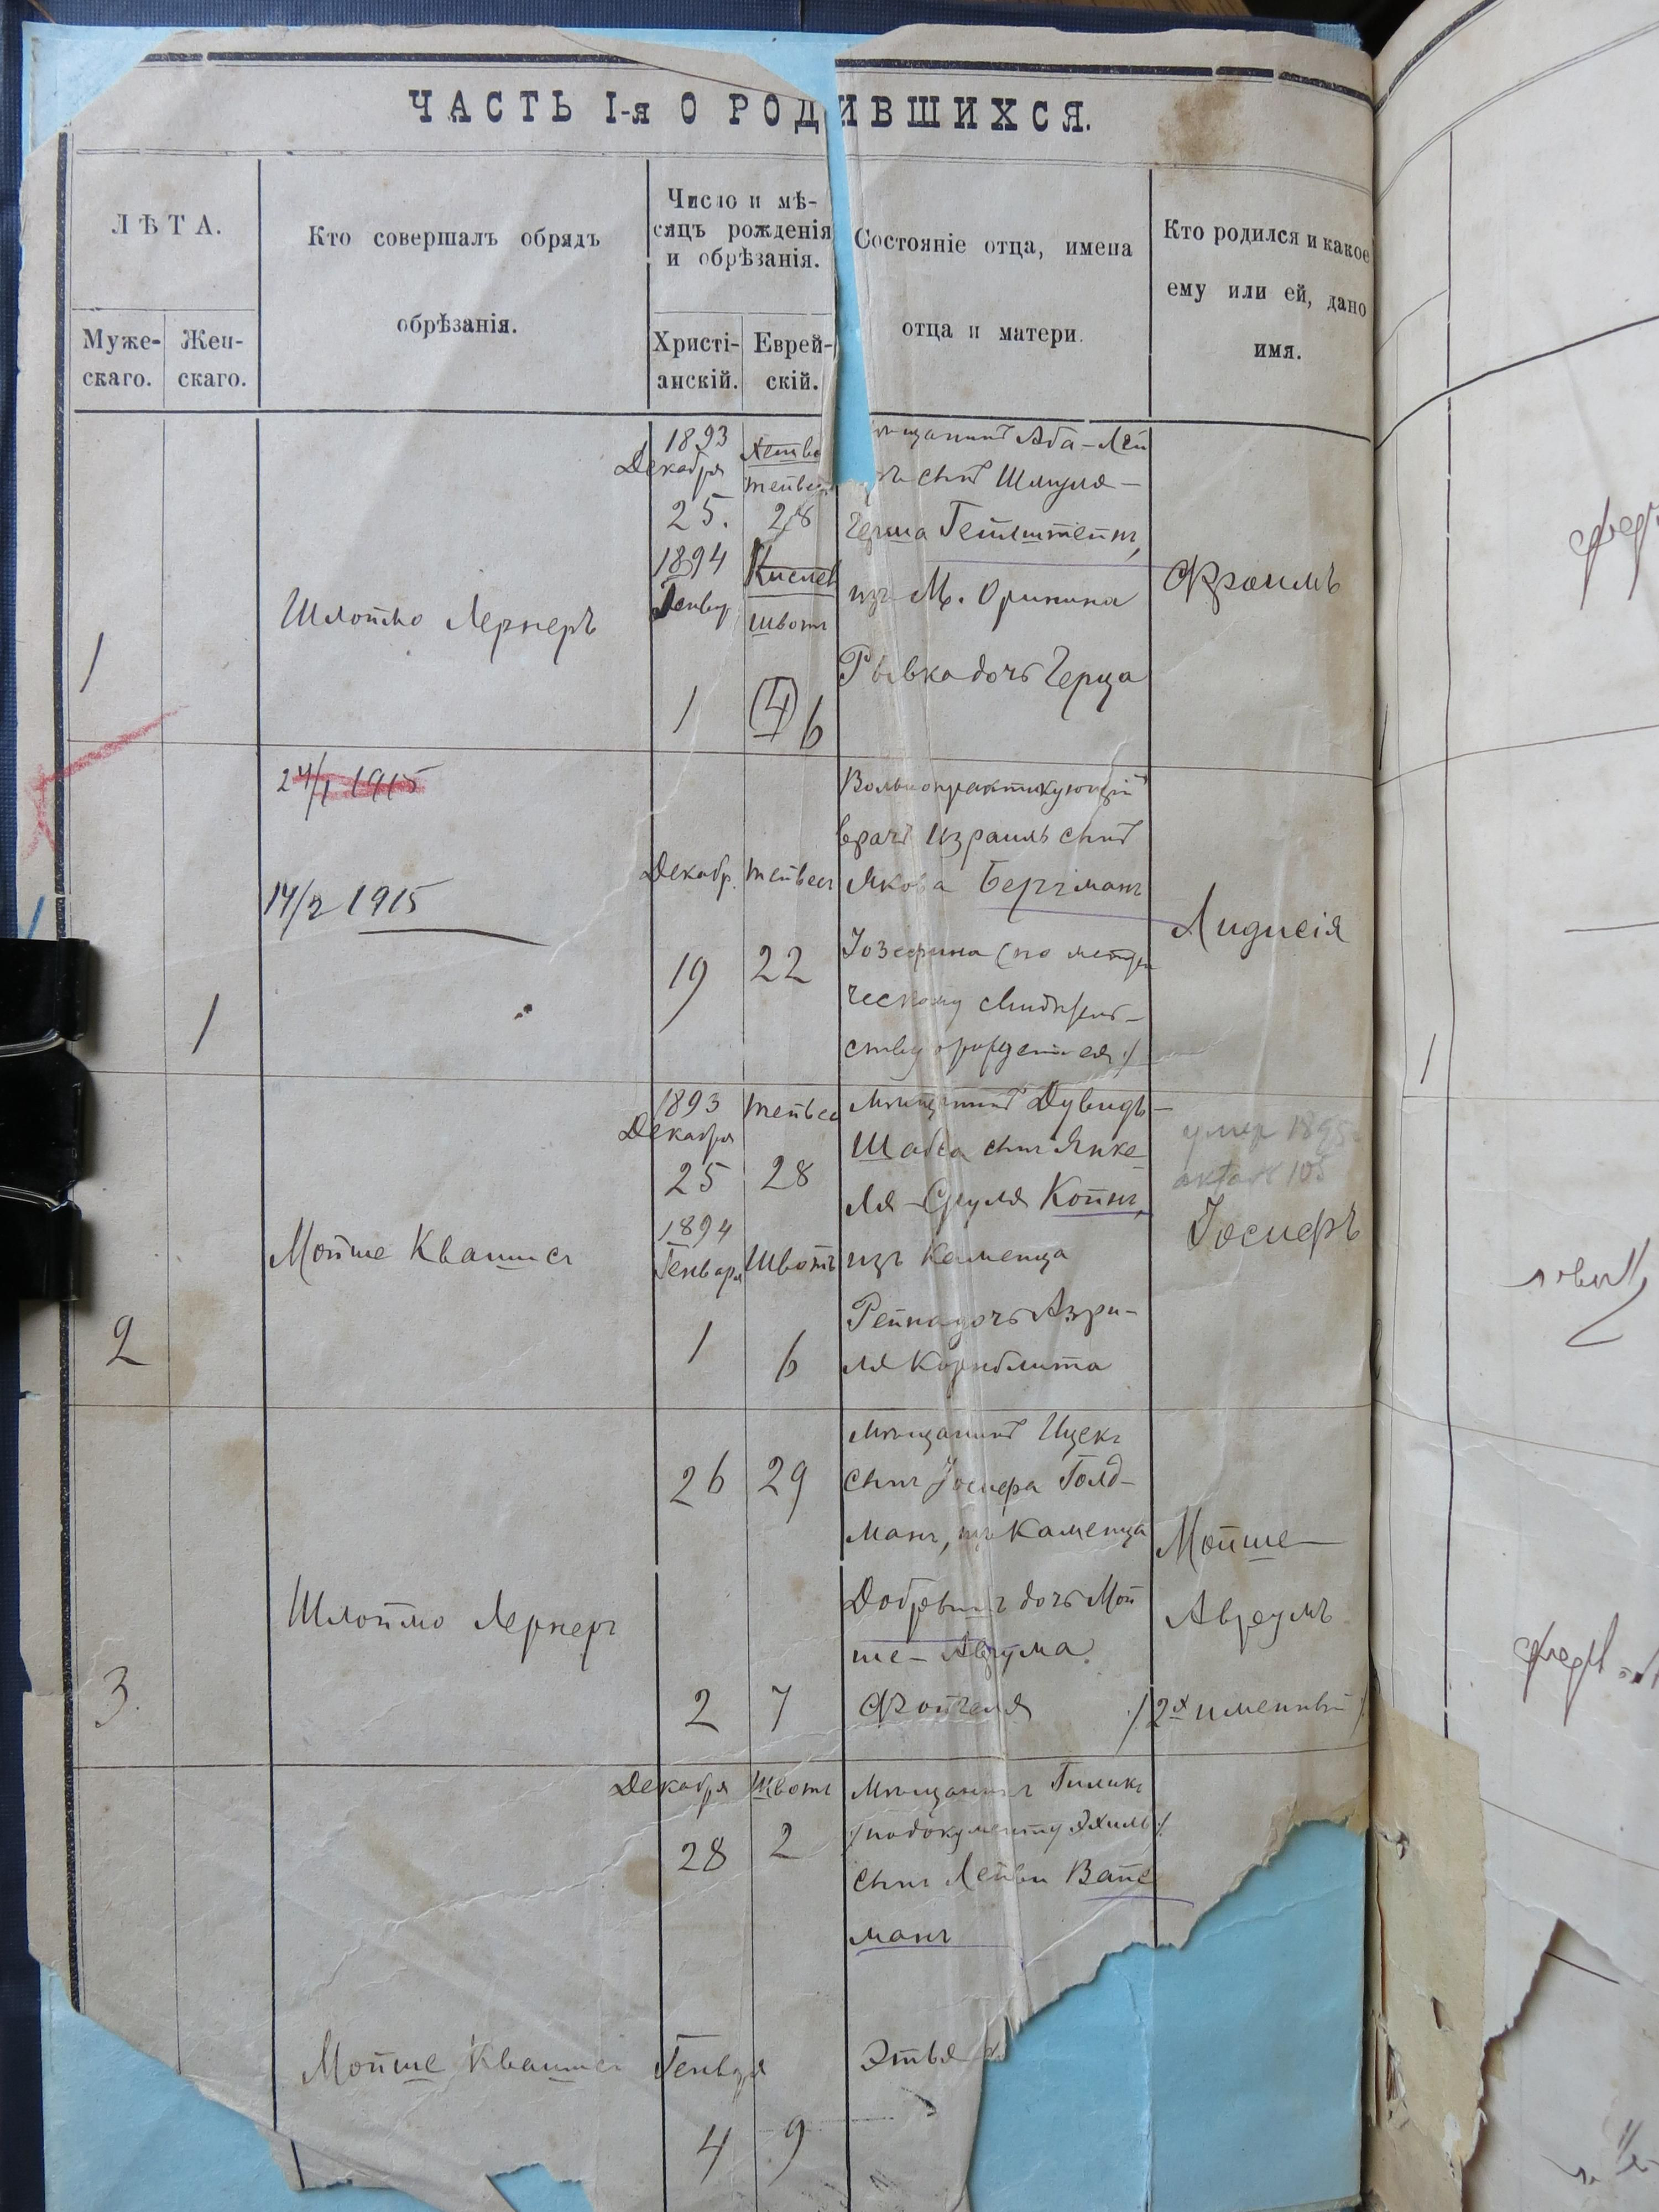 ЧАСТЬ I-я О РОДИВШИХСЯ.
ЛѢТА.
Муже-
скаго.
Жен-
скаго.
Кто совершалъ обрядъ
обрѣзанія.
Число и мѣ-
сяцъ рожденія
и обрѣзанія.
Христі-
анскій.
Еврей-
скій.
Состояніе отца, имена
отца и матери.
Кто родился и какое
ему или ей, дано
имя.
1
Шлоймо Лернеръ
1893
Декабря
25.
1894
Генвар
1
тейвес
28
Кислев
швотъ
4 6
Аба-Лей
сынъ Шмуля-
Герша Гейлштейнъ,
изъ М. Оринина
Рывка дочь Герца
Фроимъ
24/1 1915
14/2 1915
1
Декабр.
19
тейвесъ
22
Вольнопрактикующій
врачъ Израиль сынъ
Якова Бергманъ
Іозефина (по метри
ческому свидѣтель-
ству о рожденіи ея)
Лидисія
2
Мойше Квашисъ
1893
Декабря
25
1894
Генваря
1
тейвес
28
Швотъ
6
Мѣщанинъ Дувидъ-
Шабса сынъ Янке-
ля-Сруля Койнъ,
изъ Каменца
Рейна дочь Азри-
ля Корнблита
умер 1895
актом 105
Іосифъ
3
Шлоймо Лернеръ
26
2
29
7
Мѣщанинъ Ицекъ
сынъ Іосифа Голд-
манъ, изъ Каменца
дочь Мой
ше-Аврума
Мойше-
Аврумъ
/2х именный/
Мойше Квашисъ
Декабря
28
Генвря
4
Швотъ
2
9
Мѣщанинъ
/по документу Эхиль/
сынъ Лейви Вайс
манъ
Этья